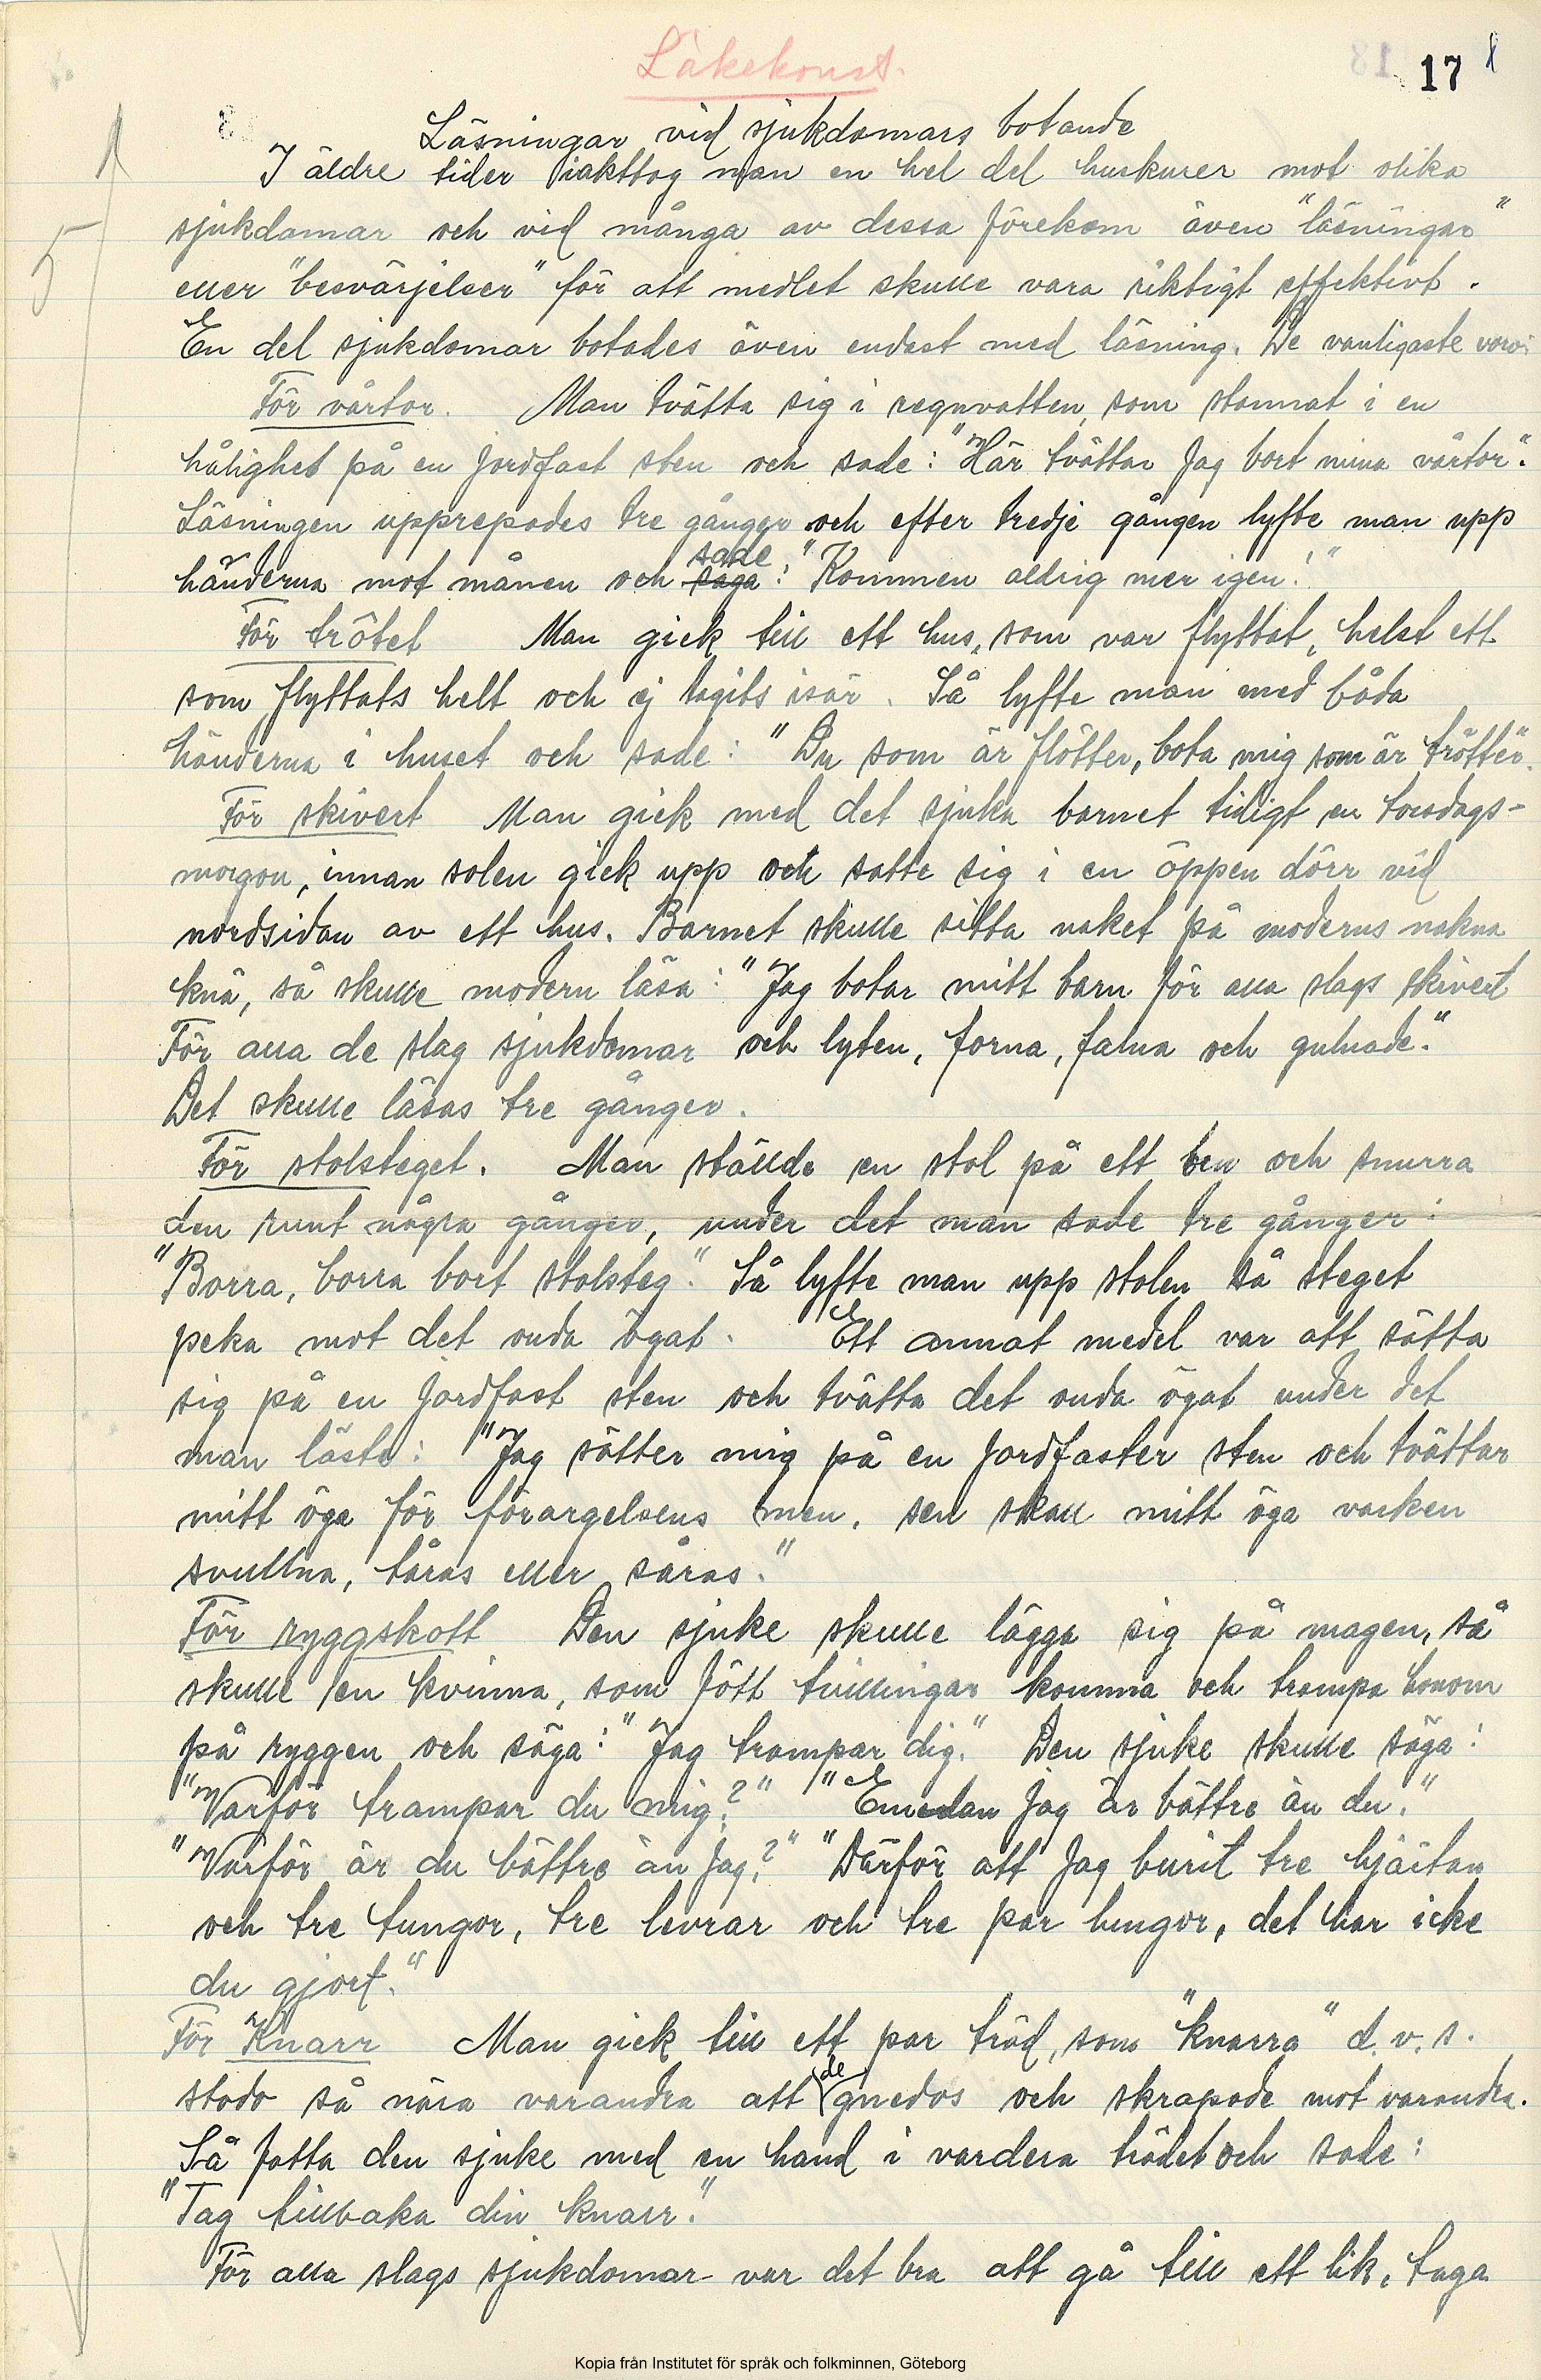 Läkekonst.
17
Läsningar vid sjukdomars botande
I äldre tider iakttog man en hel del huskurer mot olika
sjukdomar och vid många av dessa förekom även "läsningar"
eller "besvärjelser" för att medlet skulle vara riktigt effektivt.
En del sjukdomar botades även endast med läsning. De vanligaste voro:
För vårtor. Man tvätta sig i regnvatten, som stannat i en
hålighet på en jordfast sten och sade: "Här tvättar jag bort mina vårtor".
Läsningen upprepades tre gånger och efter tredje gången lyfte man upp
händerna mot månen och saga sade: "Kommen aldrig mer igen!"
För trötet Man gick till ett hus, som var flyttat, helst ett
som flyttats helt och ej tagits isär. Så lyfte man med båda
händerna i huset och sade: "Du som är flötter, bota mig som är trötter".
För skivert Man gick med det sjuka barnet tidigt en torsdags-
morgon, innan solen gick upp och satte sig i en öppen dörr vid
nordsidan av ett hus. Barnet skulle sitta naket på moderns nakna
knä, så skulle modern läsa: "Jag botar mitt barn för alla slags skivert
För alla de slag sjukdomar och lyten, forna, falna och gulnade."
Det skulle läsas tre gånger.
För stolsteget. Man ställde en stol på ett ben och snurra
den runt några gånger, under det man sade tre gånger:
"Borra, borra bort stolsteg." Så lyfte man upp stolen så steget
peka mot det onda ögat. Ett annat medel var att sätta
sig på en jordfast sten och tvätta det onda ögat under det
man läste: "Jag sätter mig på en jordfaster sten och tvättar
mitt öga för förargelsens men, sen skall mitt öga varken
svullna, tåras eller såras."
För ryggskott Den sjuke skulle lägga sig på magen, så
skulle en kvinna, som fött tvillingar komma och trampa honom
på ryggen och säga: "Jag trampar dig." Den sjuke skulle säga:
"Varför trampar du mig?" "Emedan jag är bättre än du."
"Varför är du bättre än jag?" "Därför att jag burit tre hjärtan
och tre tungor, tre levrar och tre par lungor, det har icke
du gjort."
För Knarr Man gick till ett par träd, som "knarra" d.v.s.
stodo så nära varandra att de gnedos och skrapade mot varandra.
Så fatta den sjuke med en hand i vardera trädet och sade:
"Tag tillbaka din knarr."
För alla slags sjukdomar var det bra att gå till ett lik, taga
Kopia från Institutet för språk och folkminnen, Göteborg